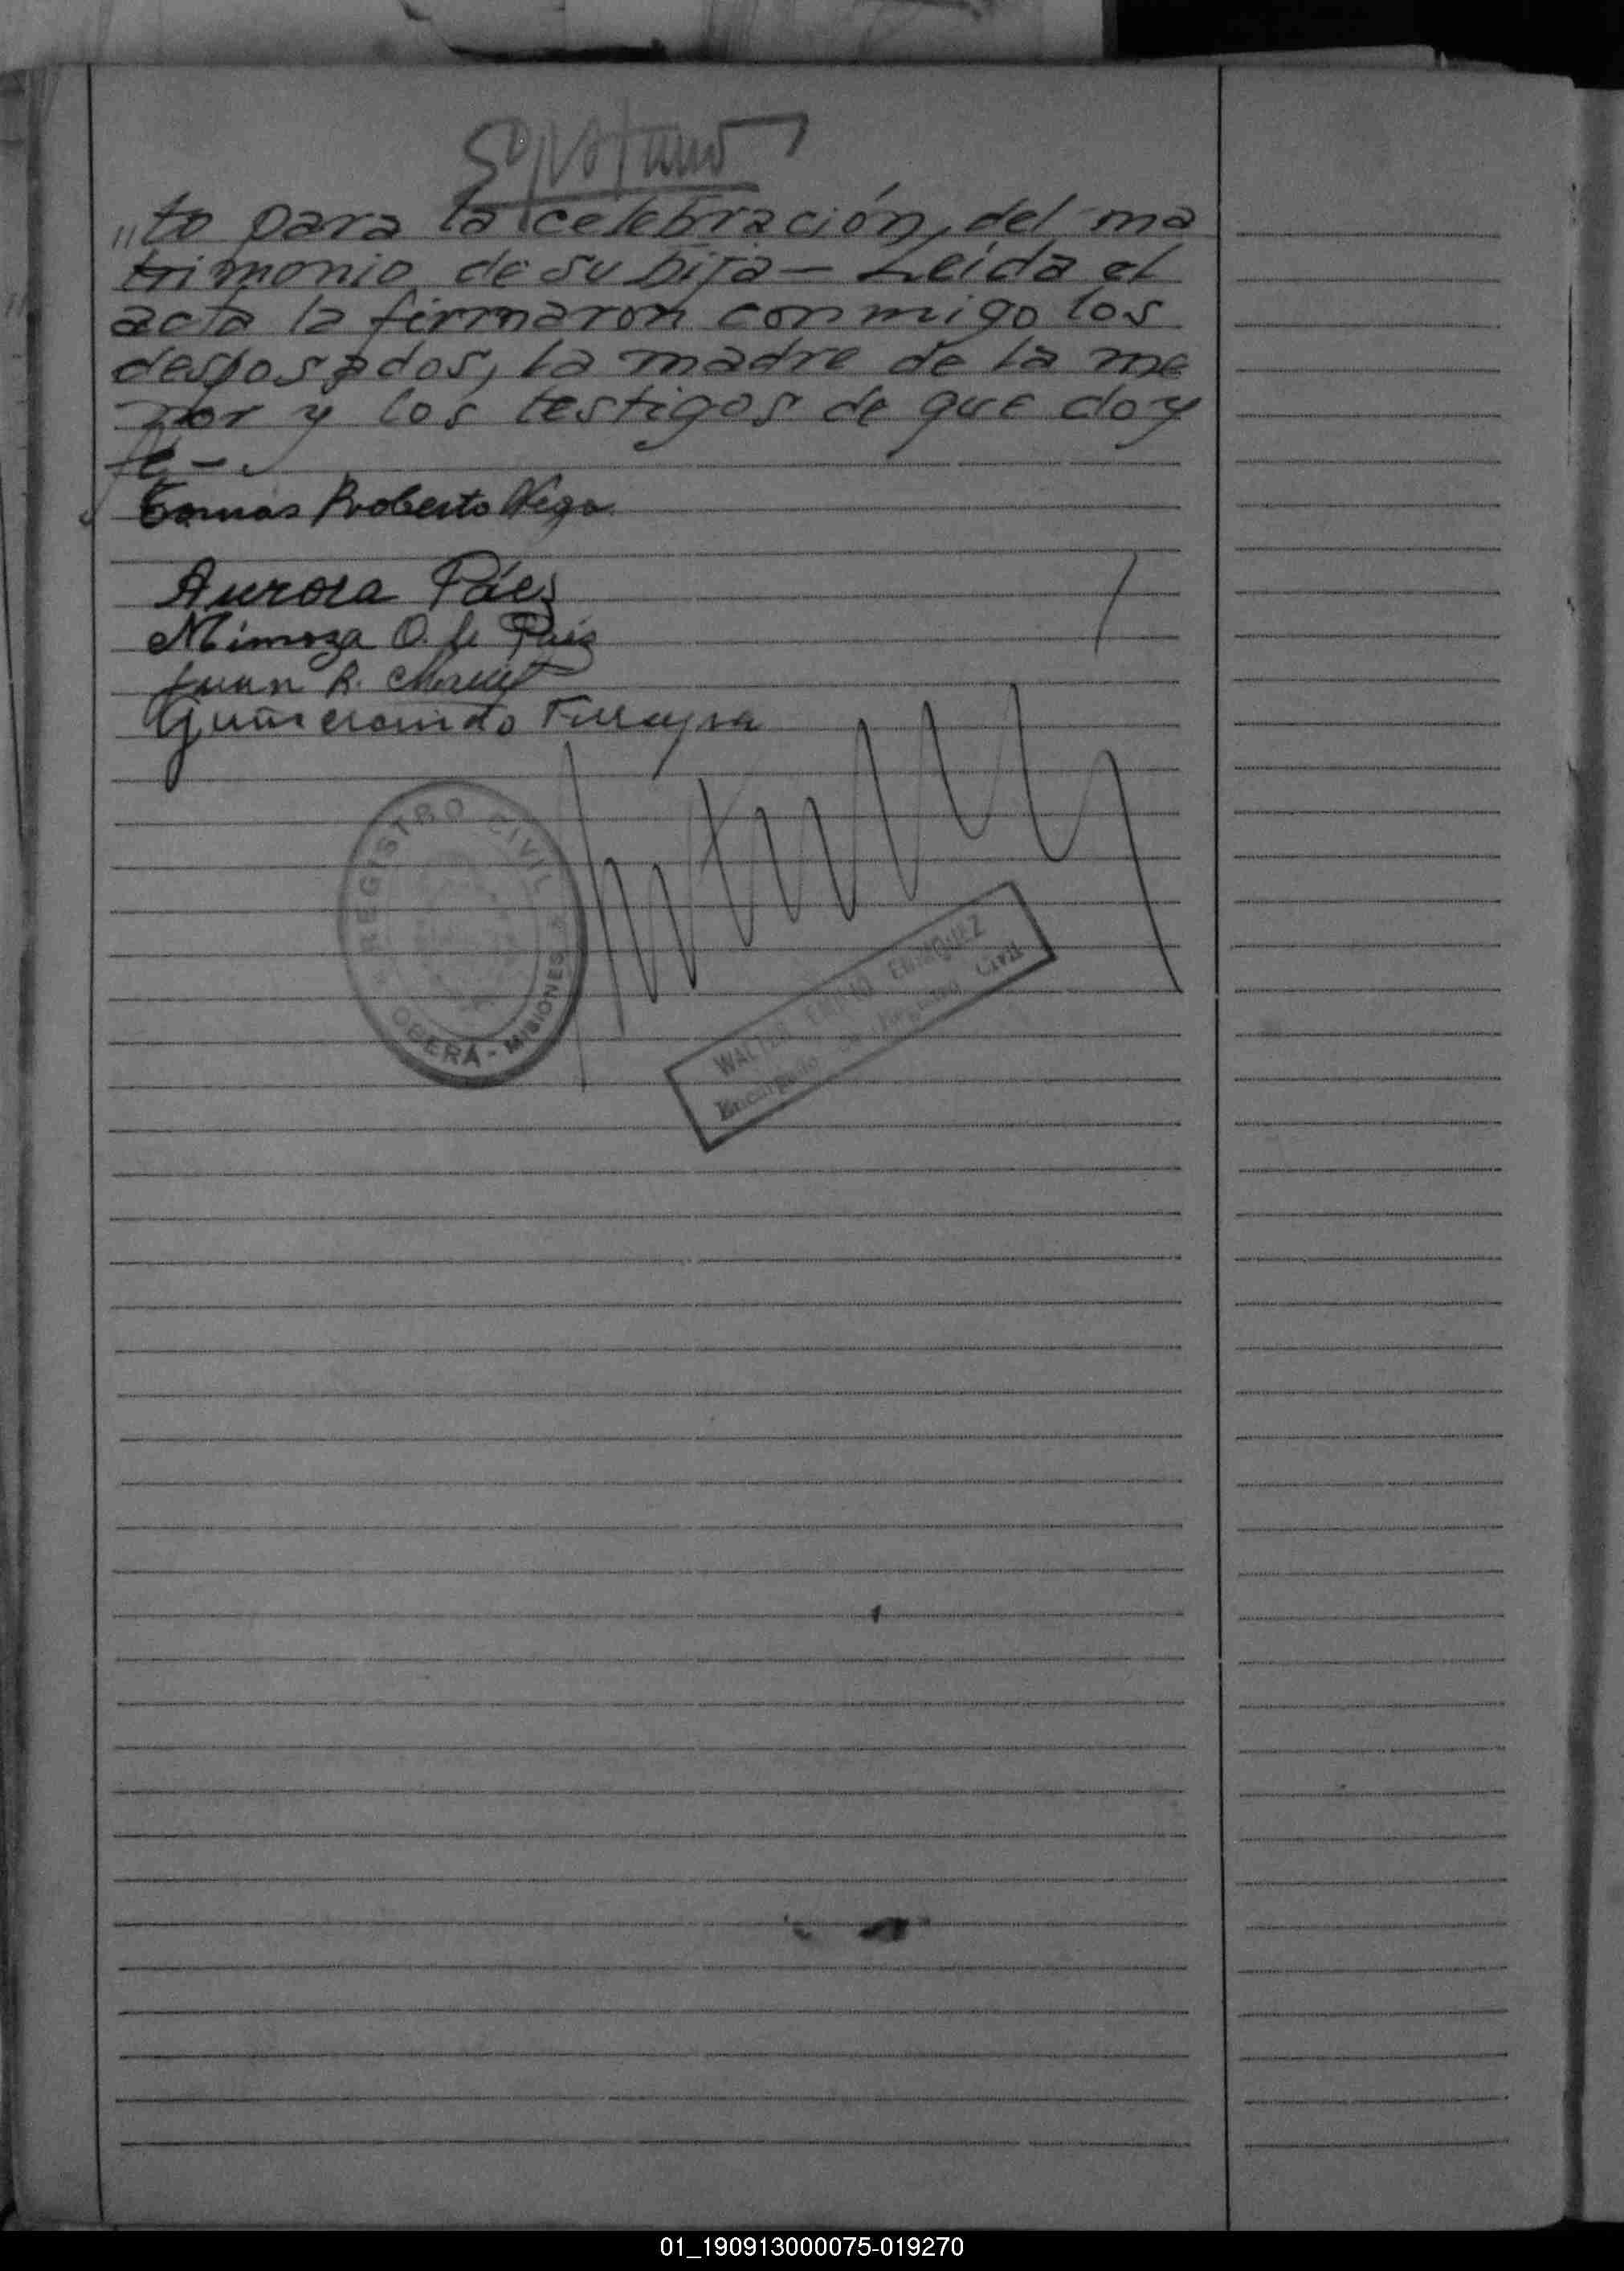 "to para la celebración, del ma
trimonio de su hija - Leida el
acta la firmaron conmigo los
desposados, la madre de la me
nor y los testigos de que doy
fé -.
Tomás Roberto Vega
Aurora Páez
Mimoza O. de Páez
Juan R.
Gumercindo
REGISTRO CIVIL
OBERA - MISIONES
WALTER EMILIO ENRIQUEZ
Encargado de Registro Civil
01_190913000075-019270